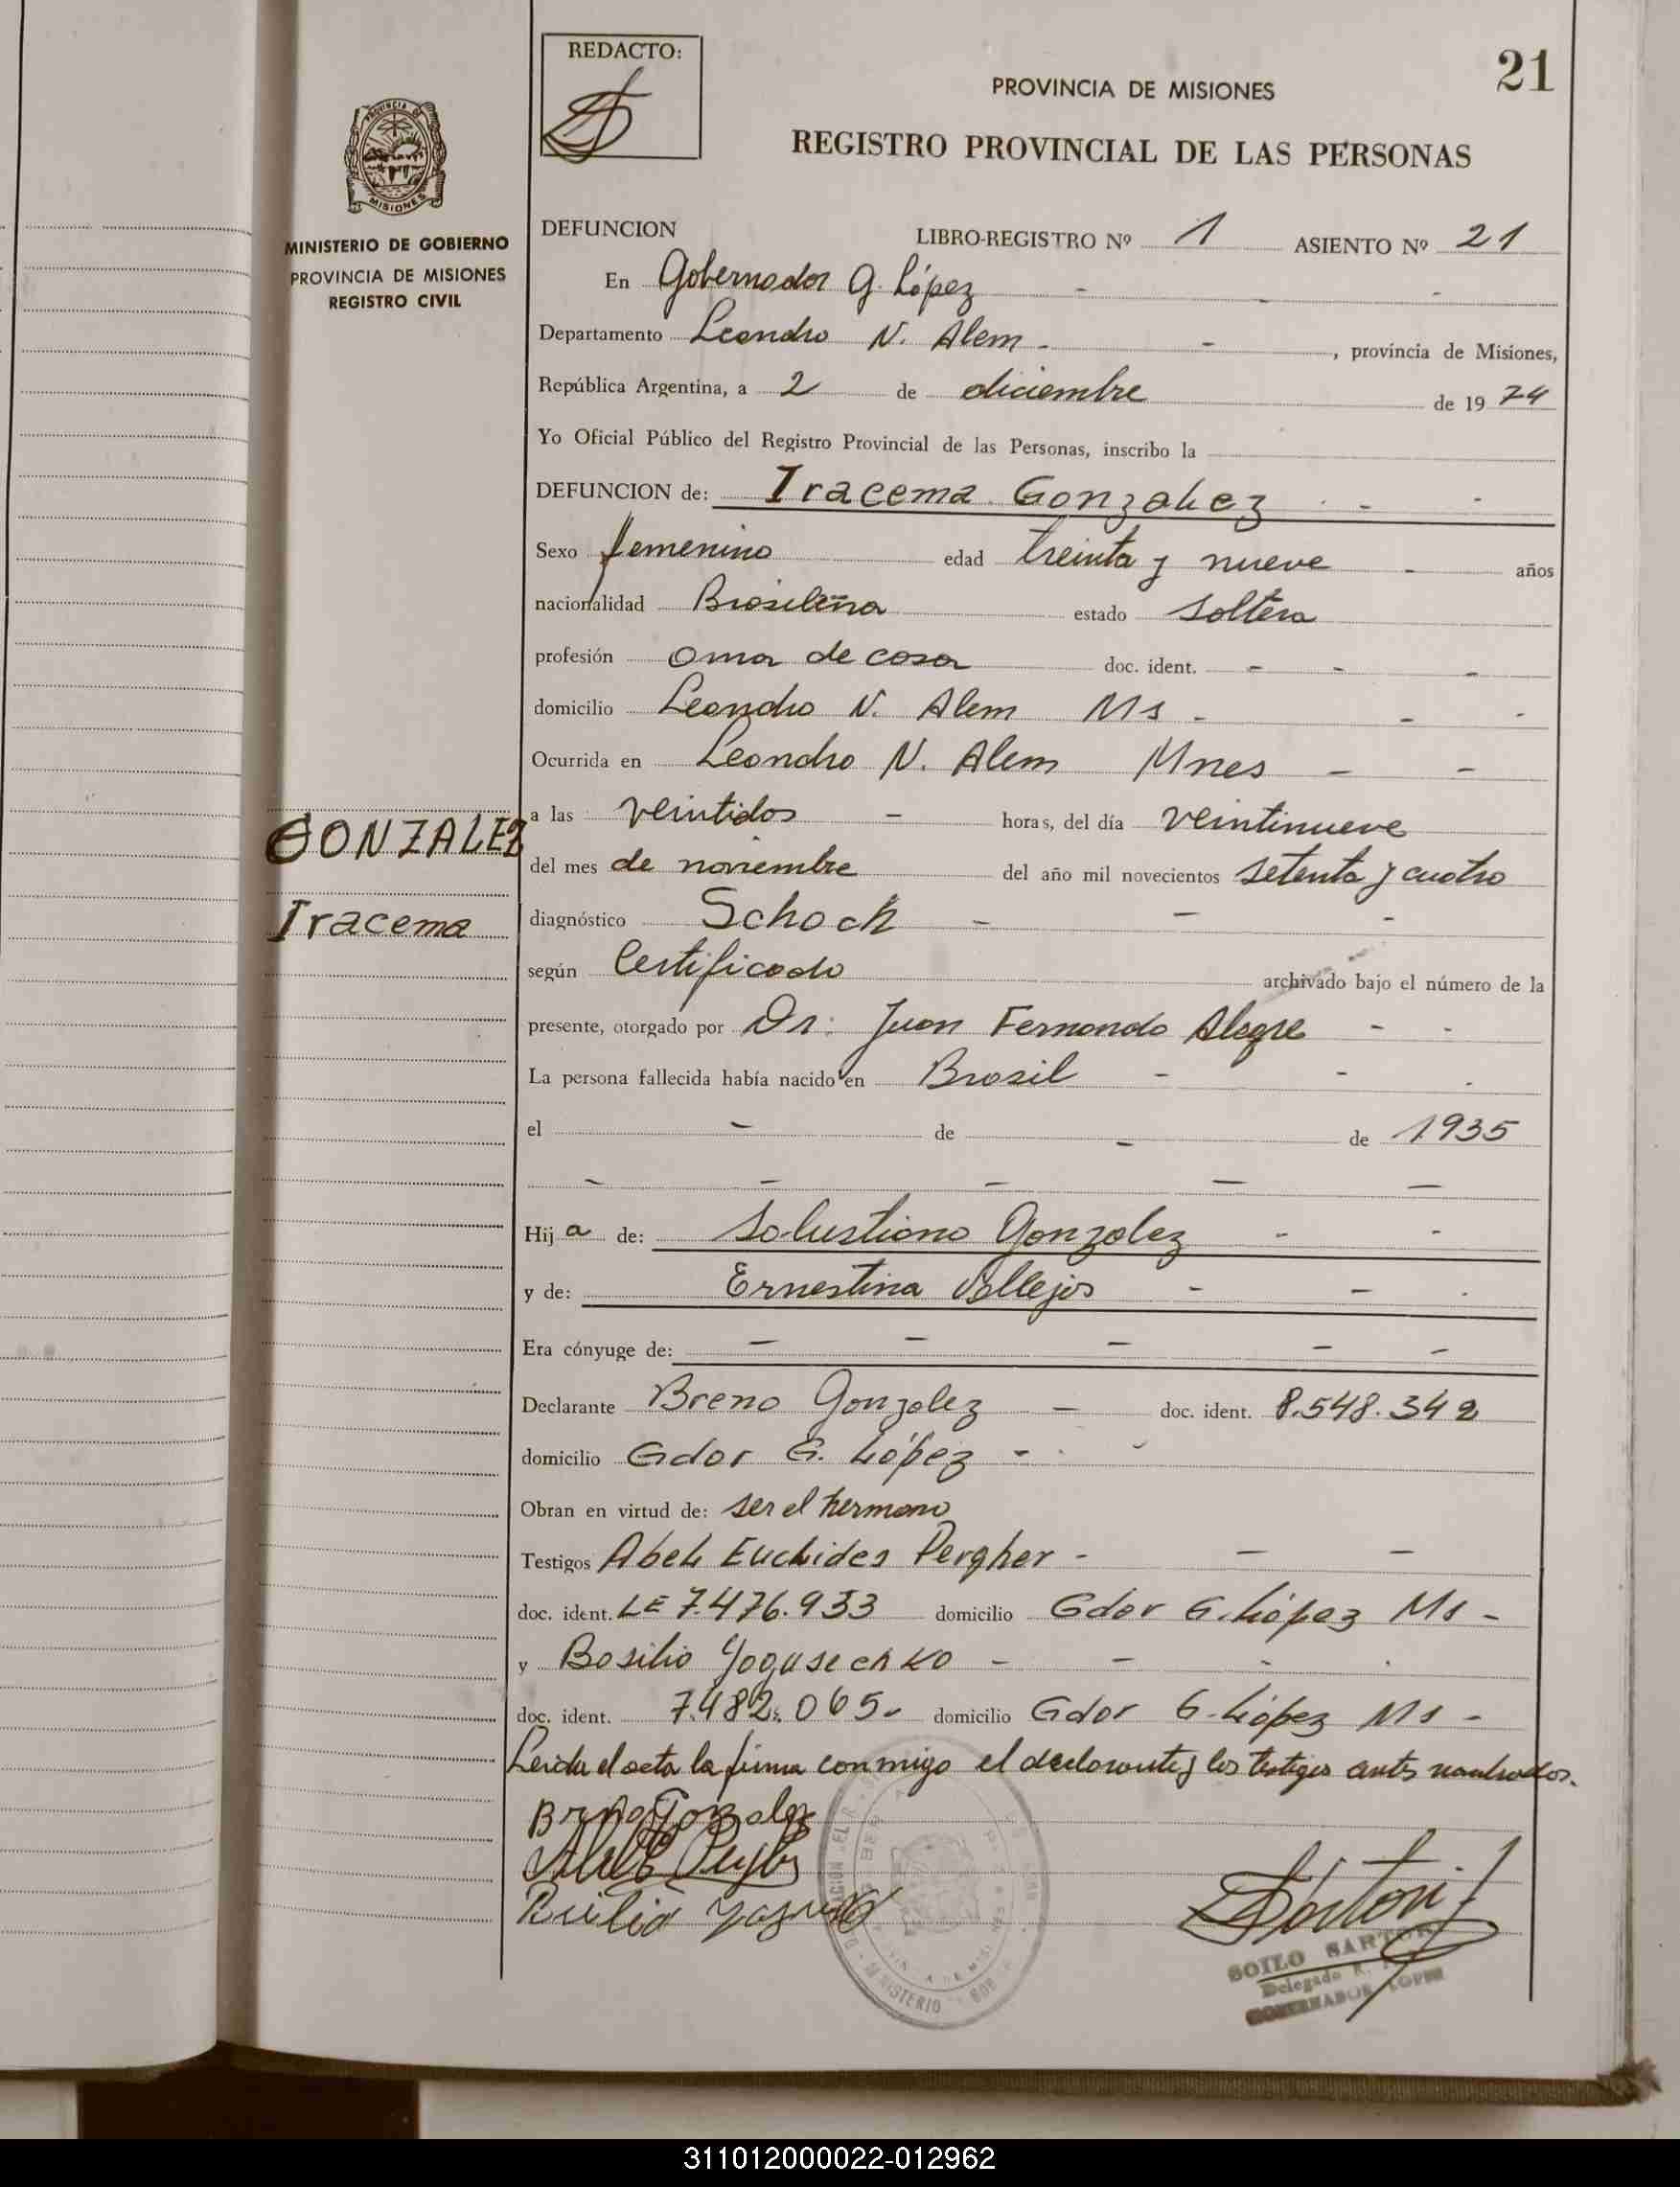 REDACTO:
21
PROVINCIA DE MISIONES
REGISTRO PROVINCIAL DE LAS PERSONAS
MISIONES
MINISTERIO DE GOBIERNO
PROVINCIA DE MISIONES
REGISTRO CIVIL
GONZALEZ
Iracema
DEFUNCION
LIBRO-REGISTRO Nº 1 ASIENTO Nº 21
En Gobernador G. López - - -
Departamento Leandro N. Alem - - , provincia de Misiones,
República Argentina, a 2 de diciembre de 1974
Yo Oficial Público del Registro Provincial de las Personas, inscribo la
DEFUNCION de: Iracema Gonzalez - -
Sexo femenino edad treinta y nueve - años
nacionalidad Brasileña estado soltera
profesión ama de casa doc. ident. - - -
domicilio Leandro N. Alem Ms - - -
Ocurrida en Leandro N. Alem Mnes - -
a las veintidos - horas, del día veintinueve
del mes de noviembre del año mil novecientos setenta y cuatro
diagnóstico Schock - - -
según Certificado archivado bajo el número de la
presente, otorgado por Dr. Juan Fernando Alegre - -
La persona fallecida había nacido en Brasil - - -
el - de - de 1935
- - - - -
Hija de: Solustiano Gonzalez - -
y de: Ernestina Vallejos - - -
Era cónyuge de: - - - - -
Declarante Breno Gonzalez - doc. ident. 8.548.342
domicilio Gdor G. López - -
Obran en virtud de: ser el hermano
Testigos Abel Euclides Pergher - - -
doc. ident. LE 7.476.933 domicilio Gdor G. López Ms -
y Basilio - - - -
doc. ident. 7.482.065 - domicilio Gdor G. López Ms -
Leida el acta la firma conmigo el declarante y los testigos antes nombrados.
Breno Gonzalez
SOILO SARTORI
Delegado R.
GOBERNADOR LOPEZ
MINISTERIO
311012000022-012962